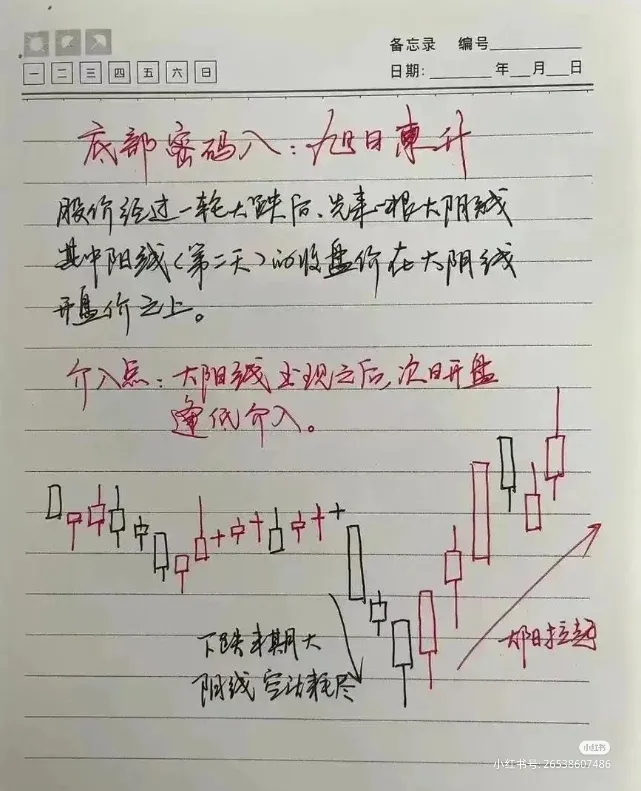 备忘录 编号
一 二 三 四 五 六 日
日期: 年 月 日
底部密码八:旭日東升
股价经过一轮大跌后、先来一根大阴线
其中阳线(第二天)的收盘价在大阴线
开盘价之上。
介入点:大阳线出现之后,次日开盘
逢低介入。
下跌末期大
阴线 空动耗尽
大阳拉起
小红书
小红书号: 26538607486